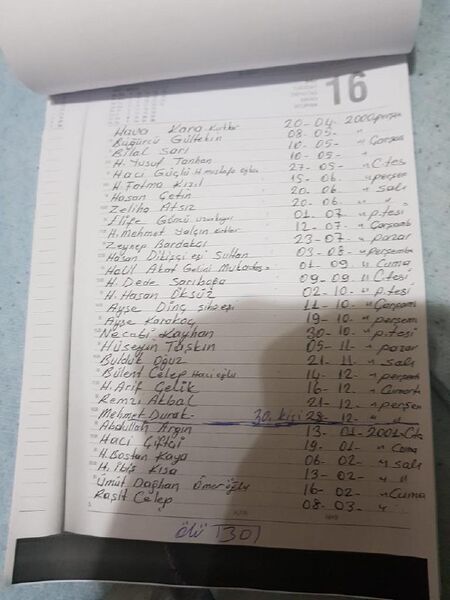 16
Hava Kara Kutlar 20-04-2000 perşem
Buğurcu Gültekin 08-05- "
Bilal Sarı 10-05- " Çarşam
H. Yusuf Tanhan 10-05- " "
Haci Güçlü H. mustafa oğlu 27-05- " C.tes
H. Fatma Kızıl 15-06- " perşem
Hasan Çetin 20-06- " salı
Zeliha Atsız 20-06- " "
Elife Güncü 01-07- " C.tesi
H. Mehmet Yalçın 12-07- " Çarşamb
Zeynep Bardakçı 23-07- " pazar
Hasan Dikişçi eşi Sultan 03-08- " perşemb
Halil Akat Gelini 01-09- " Cuma
H. Dede Sarıbaba 09-09- " C.tesi
H. Hasan Öksüz 02-10- " p.tesi
Ayşe Dinç 11-10- " Çarşamb
Ayşe Karakoç 19-10- " perşem
Necati Kayhan 30-10- " p.tesi
Hüseyin Taşkın 05-11- " pazar
Bulduk Oğuz 21-11- " salı
Bülent Çelep Hacı oğlu 14-12- " perşemb
H. Arif Çelik 16-12- " Cumart
Remzi Akbal 21-12- " perşen
Mehmet Durak 30. kişi 28-12- " "
Abdullah Argın 13-01-2001 C.te
Haci Çiftçi 19-01- " Cuma
H. Bostan Kaya 06-02- " salı
H. İbiş Kısa 13-02- " "
Ümüt Dağhan Ömeroğlu 16-02- " Cuma
Raşit Çelep 08-03- "
ölü 30